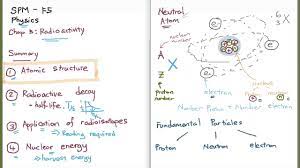 SPM - F5
Physics
Chap 5: Radioactivity
Summary
① Atomic structure
② Radioactive decay
- half-life. T½
③ Application of radioisotopes
⇒ Reading required
④ Nuclear energy
⇒ harvest energy
Neutral
Atom
A
X
Z
proton
number
e
e
e
Number Proton = Number electron
Fundamental Particles
Proton
Neutron
electron